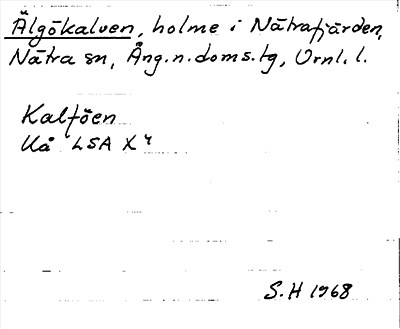 Älgökalven, holme i Nätrafjärden,
Nätra sn, Ång.n.doms.tg, Örnl. l.
Kalföen
Uå LSA X 4
S.H 1968